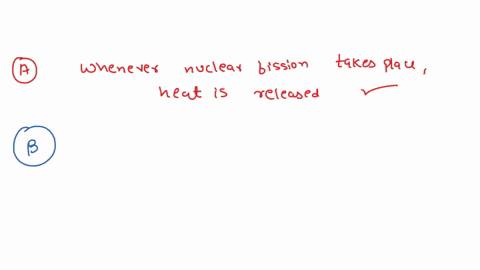 A whenever nuclear bission takes place,
heat is released
B